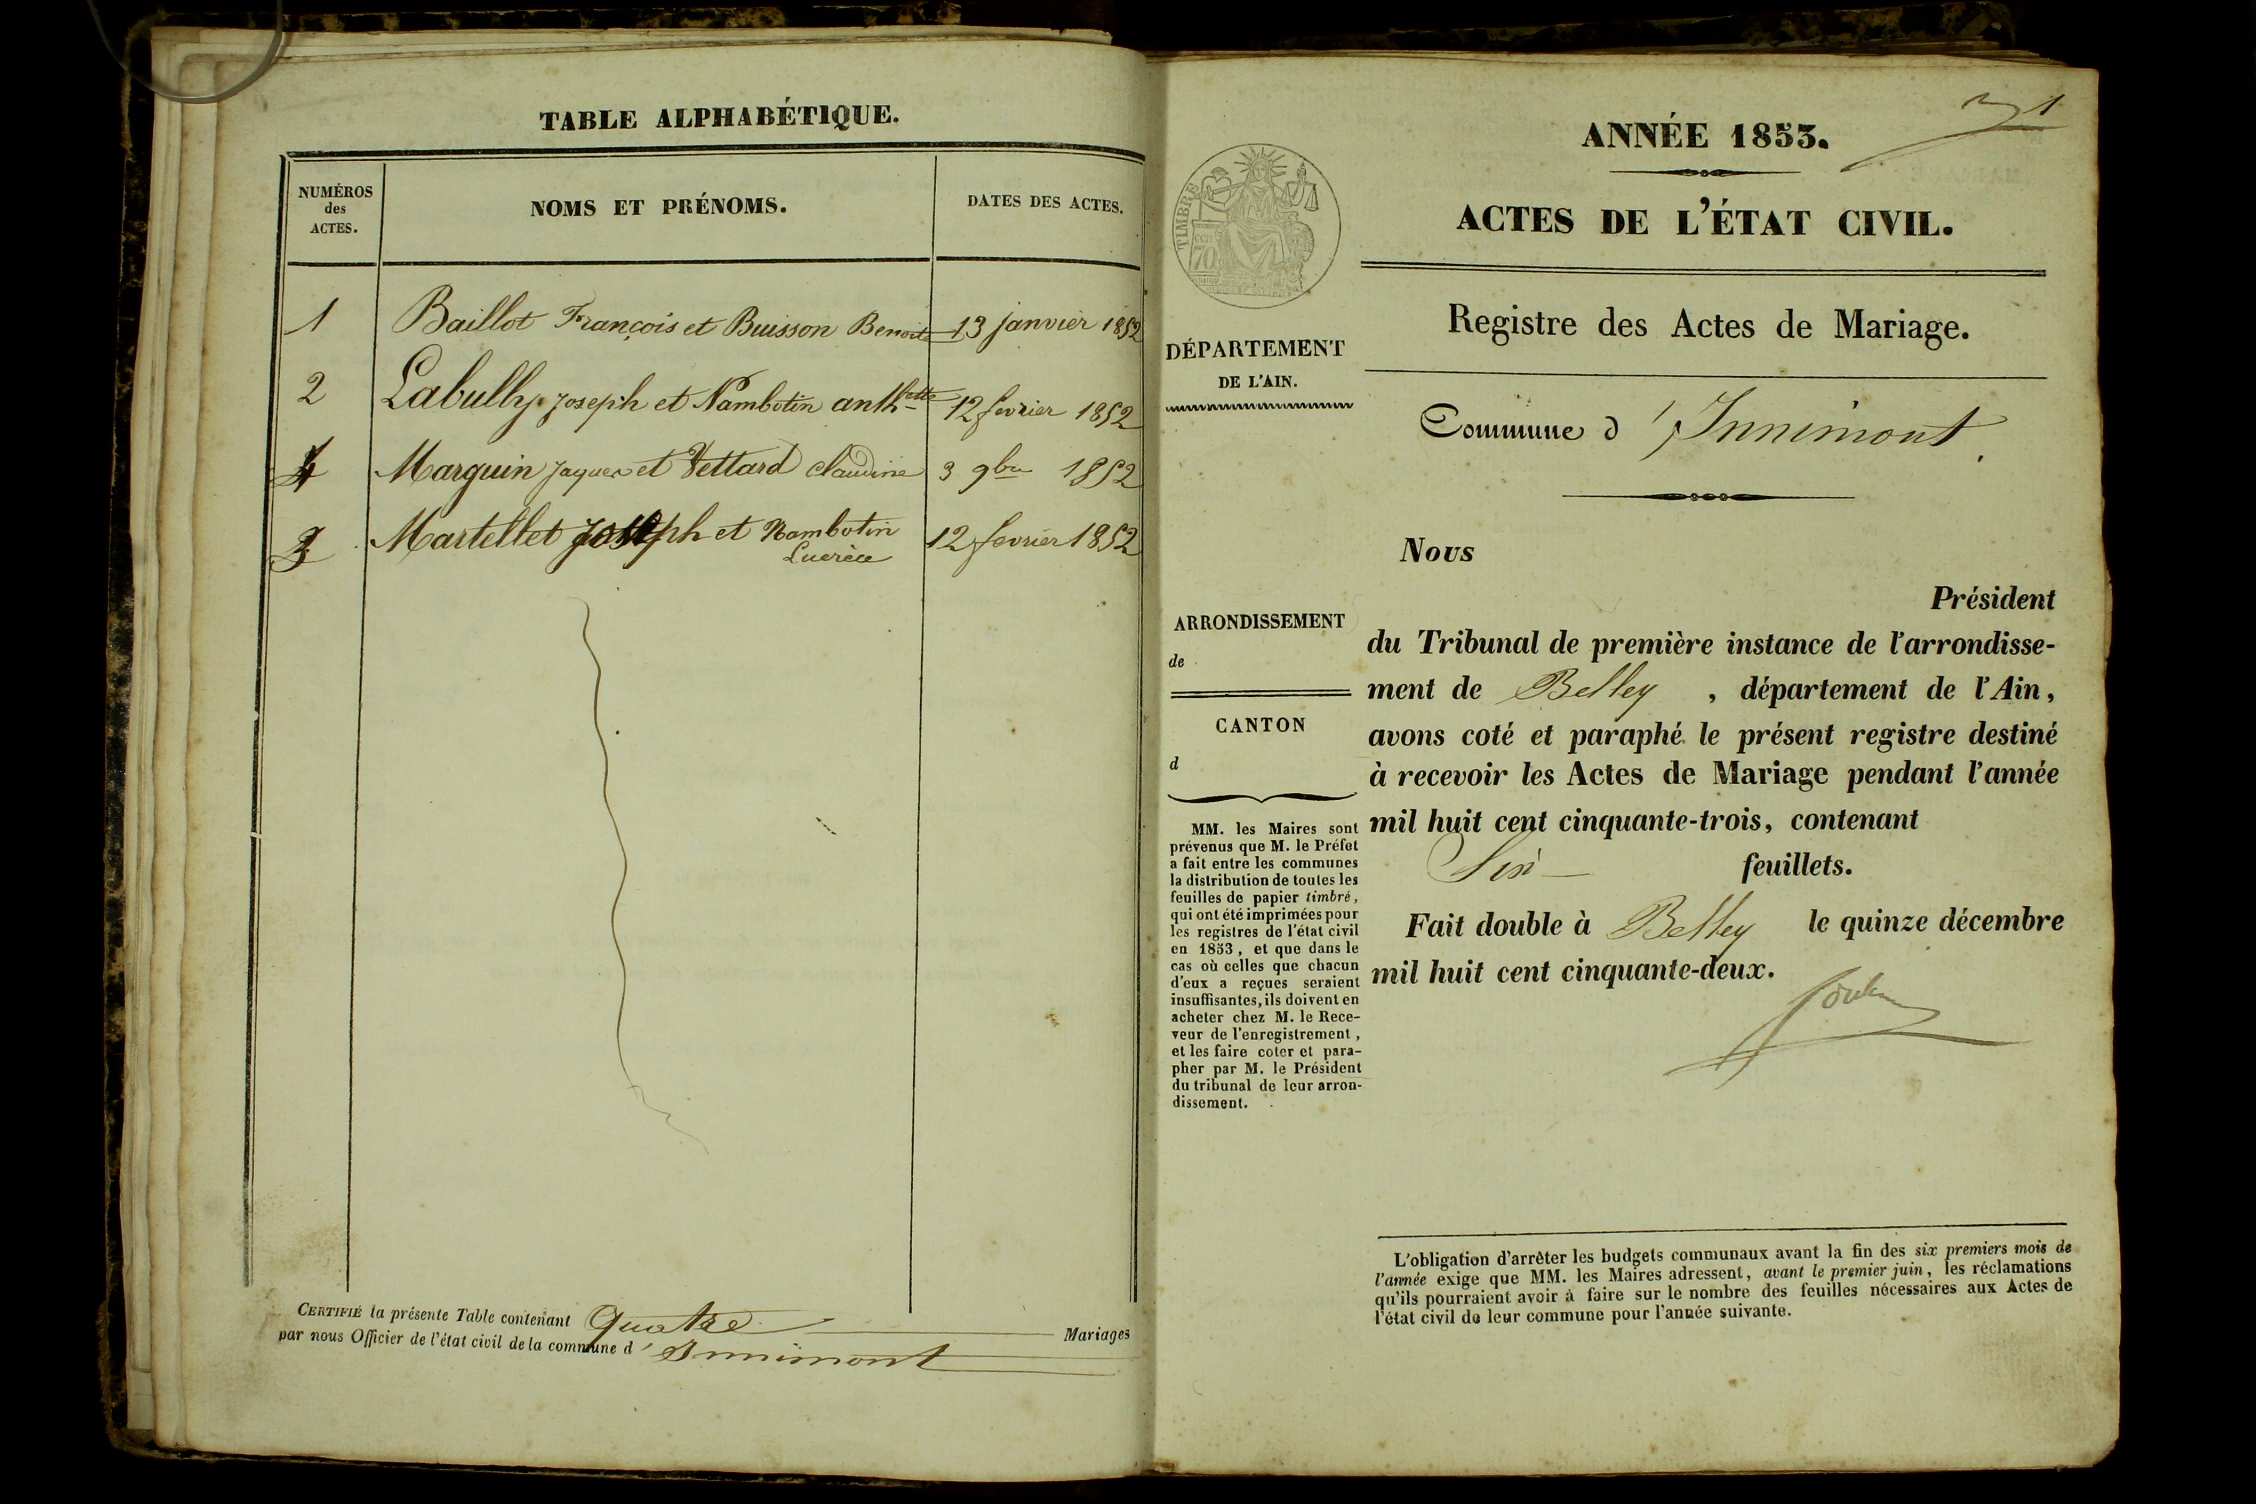 TABLE ALPHABÉTIQUE.
NUMÉROS
des
ACTES.
NOMS ET PRÉNOMS.
DATES DES ACTES.
1 Baillot François et Buisson Benoite 13 janvier 1852
2 Labully Joseph et Nambotin anthette 12 fevrier 1852
4 Marguin Jaques et Vettard claudine 3 9bre 1852
3 Martellet Joseph et Nambotin 12 fevrier 1852
Lucrèce
CERTIFIÉ la présente Table contenant Quatre Mariages
par nous Officier de l'état civil de la commune d'Innimont
1
ANNÉE 1853.
ACTES DE L'ÉTAT CIVIL.
TIMBRE
70
Registre des Actes de Mariage.
DÉPARTEMENT
DE L'AIN.
Commune d'Innimont
ARRONDISSEMENT
de
CANTON
d
MM. les Maires sont
prévenus que M. le Préfet
a fait entre les communes
la distribution de toutes les
feuilles de papier timbré,
qui ont été imprimées pour
les registres de l'état civil
en 1853, et que dans le
cas où celles que chacun
d'eux a reçues seraient
insuffisantes, ils doivent en
acheter chez M. le Rece-
veur de l'enregistrement,
et les faire coter et para-
pher par M. le Président
du tribunal de leur arron-
dissement.
Nous
Président
du Tribunal de première instance de l'arrondisse-
ment de Belley, département de l'Ain,
avons coté et paraphé le présent registre destiné
à recevoir les Actes de Mariage pendant l'année
mil huit cent cinquante-trois, contenant
Six feuillets.
Fait double à Belley le quinze décembre
mil huit cent cinquante-deux.
L'obligation d'arrêter les budgets communaux avant la fin des six premiers mois de
l'année exige que MM. les Maires adressent, avant le premier juin, les réclamations
qu'ils pourraient avoir à faire sur le nombre des feuilles nécessaires aux Actes de
l'état civil de leur commune pour l'année suivante.